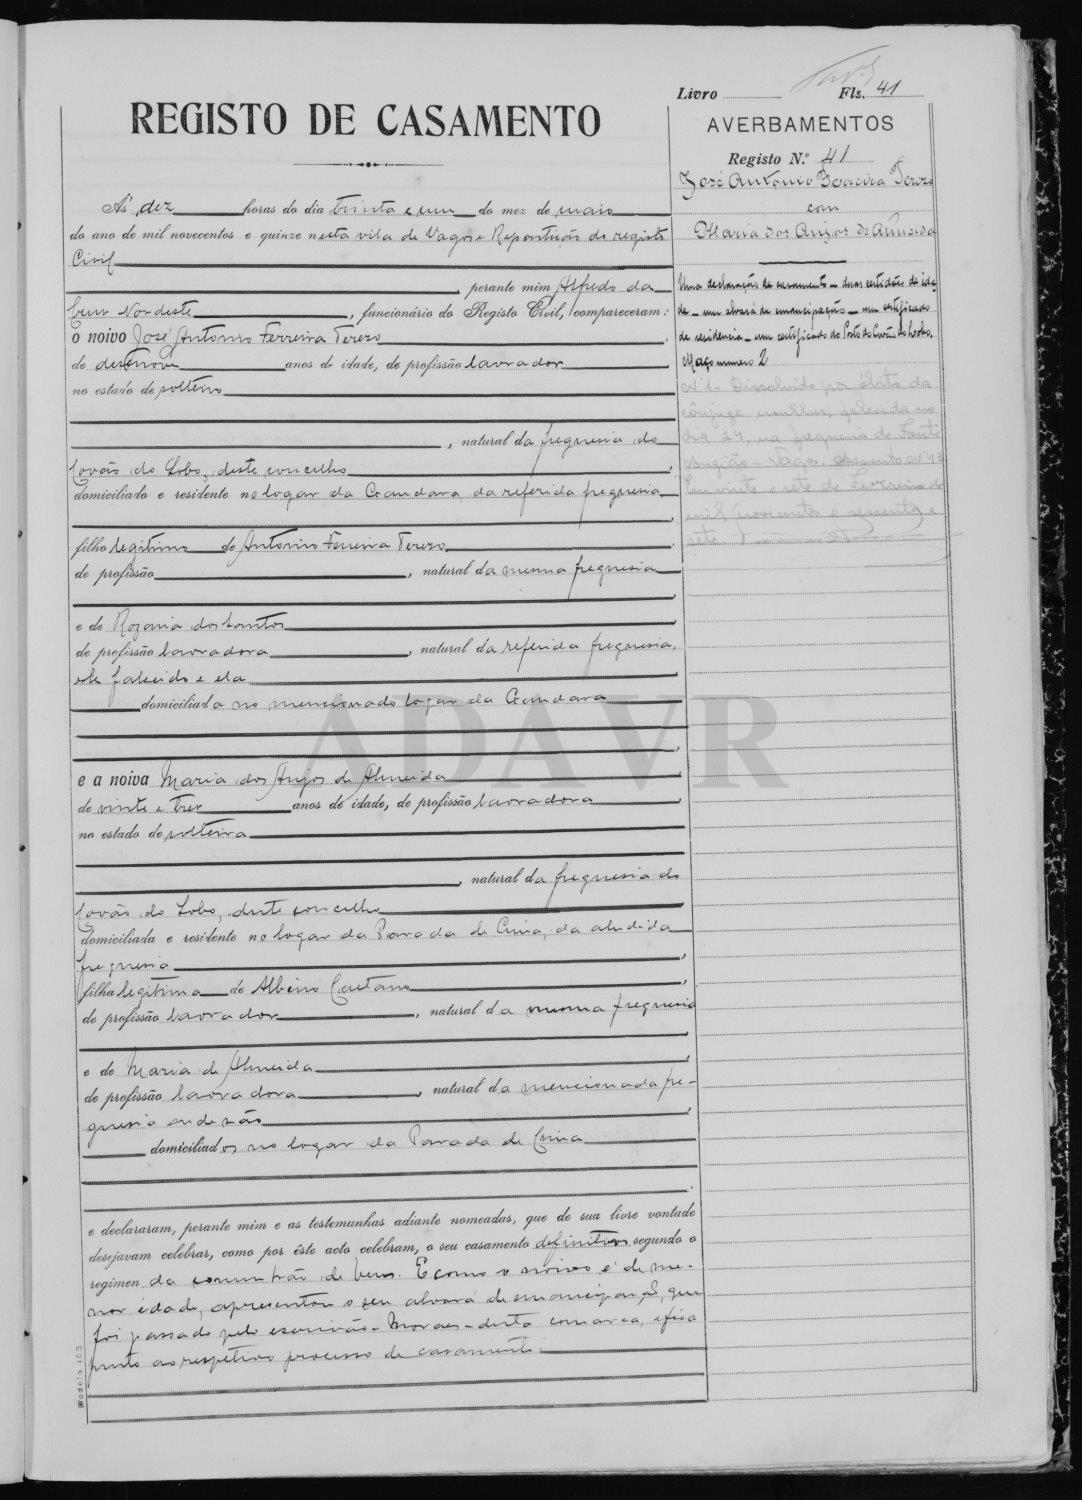 Livro Fls. 41
REGISTO DE CASAMENTO
AVERBAMENTOS
Registo N.º 41
José Antonio Ferreira Terezo
com
Maria dos Anjos de Almeida
Uma declaração de casamento - duas certidões de ida-
de - um alvará de emancipação - um certificado
de residencia - um certificado do Posto do Covão do Lobo.
Maço numero 2
N.º 1 - Dissolvido por óbito da
cônjuge mulher, falecida no
dia 24, na freguesia de Fonte
Angião - Vagos. Assento N.º 43
Em vinte e sete de Fevereiro de
mil novecentos e sessenta e
sete
Ás dez horas do dia trinta e um do mez de maio
do ano de mil novecentos e quinze nesta vila de Vagos e Repartição do registo
Civil
, perante mim Alfredo da
Nordeste , funcionário do Registo Civil, compareceram:
o noivo José Antonio Ferreira Terezo ,
de desenove anos de idade, de profissão lavrador
no estado de solteiro
, natural da freguesia do
Covão do Lobo, deste concelho
domiciliado e residente no logar da Gandara da referida freguesia
filho legitimo de Antonio Ferreira Terezo
de profissão , natural da mesma freguesia
e de Rozaria dos Santos
de profissão lavradora , natural da referida freguesia,
ele falecido e ela
domiciliada no mencionado logar da Gandara
ADAVR
e a noiva Maria dos Anjos de Almeida
de vinte e trez anos de idade, de profissão lavradora
no estado de solteira
, natural da freguesia do
Covão do Lobo, deste concelho
domiciliada e residente no logar da Parada de Cima, da aludida
freguesia
filha legitima de Albino Caetano
de profissão lavrador , natural da mesma freguesia
e de Maria de Almeida
de profissão lavradora , natural da mencionada fre-
guesia onde são
domiciliados no logar da Parada de Cima
e declararam, perante mim e as testemunhas adiante nomeadas, que de sua livre vontade
desejavam celebrar, como por êste acto celebram, o seu casamento definitivo segundo o
regimen da comunhão de bens. E como o noivo é de me-
nor idade, apresentou o seu alvará de emancipação, que
foi passado pelo escrivão - Moraes - desta comarca, e fica
junto ao respetivo processo de casamento.
Modelo